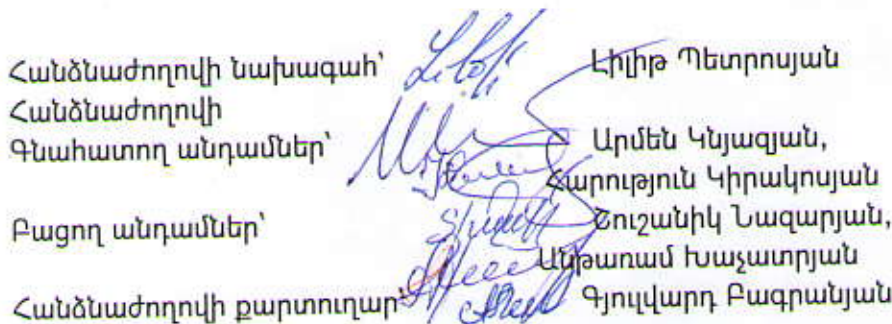 Հանձնաժողովի նախագահ՝ Լիլիթ Պետրոսյան
Հանձնաժողովի
Գնահատող անդամներ՝ Արմեն Կնյազյան,
Հարություն Կիրակոսյան
Բացող անդամներ՝ Շուշանիկ Նազարյան,
Անթառամ Խաչատրյան
Հանձնաժողովի քարտուղար՝ Գյուլվարդ Բագրանյան